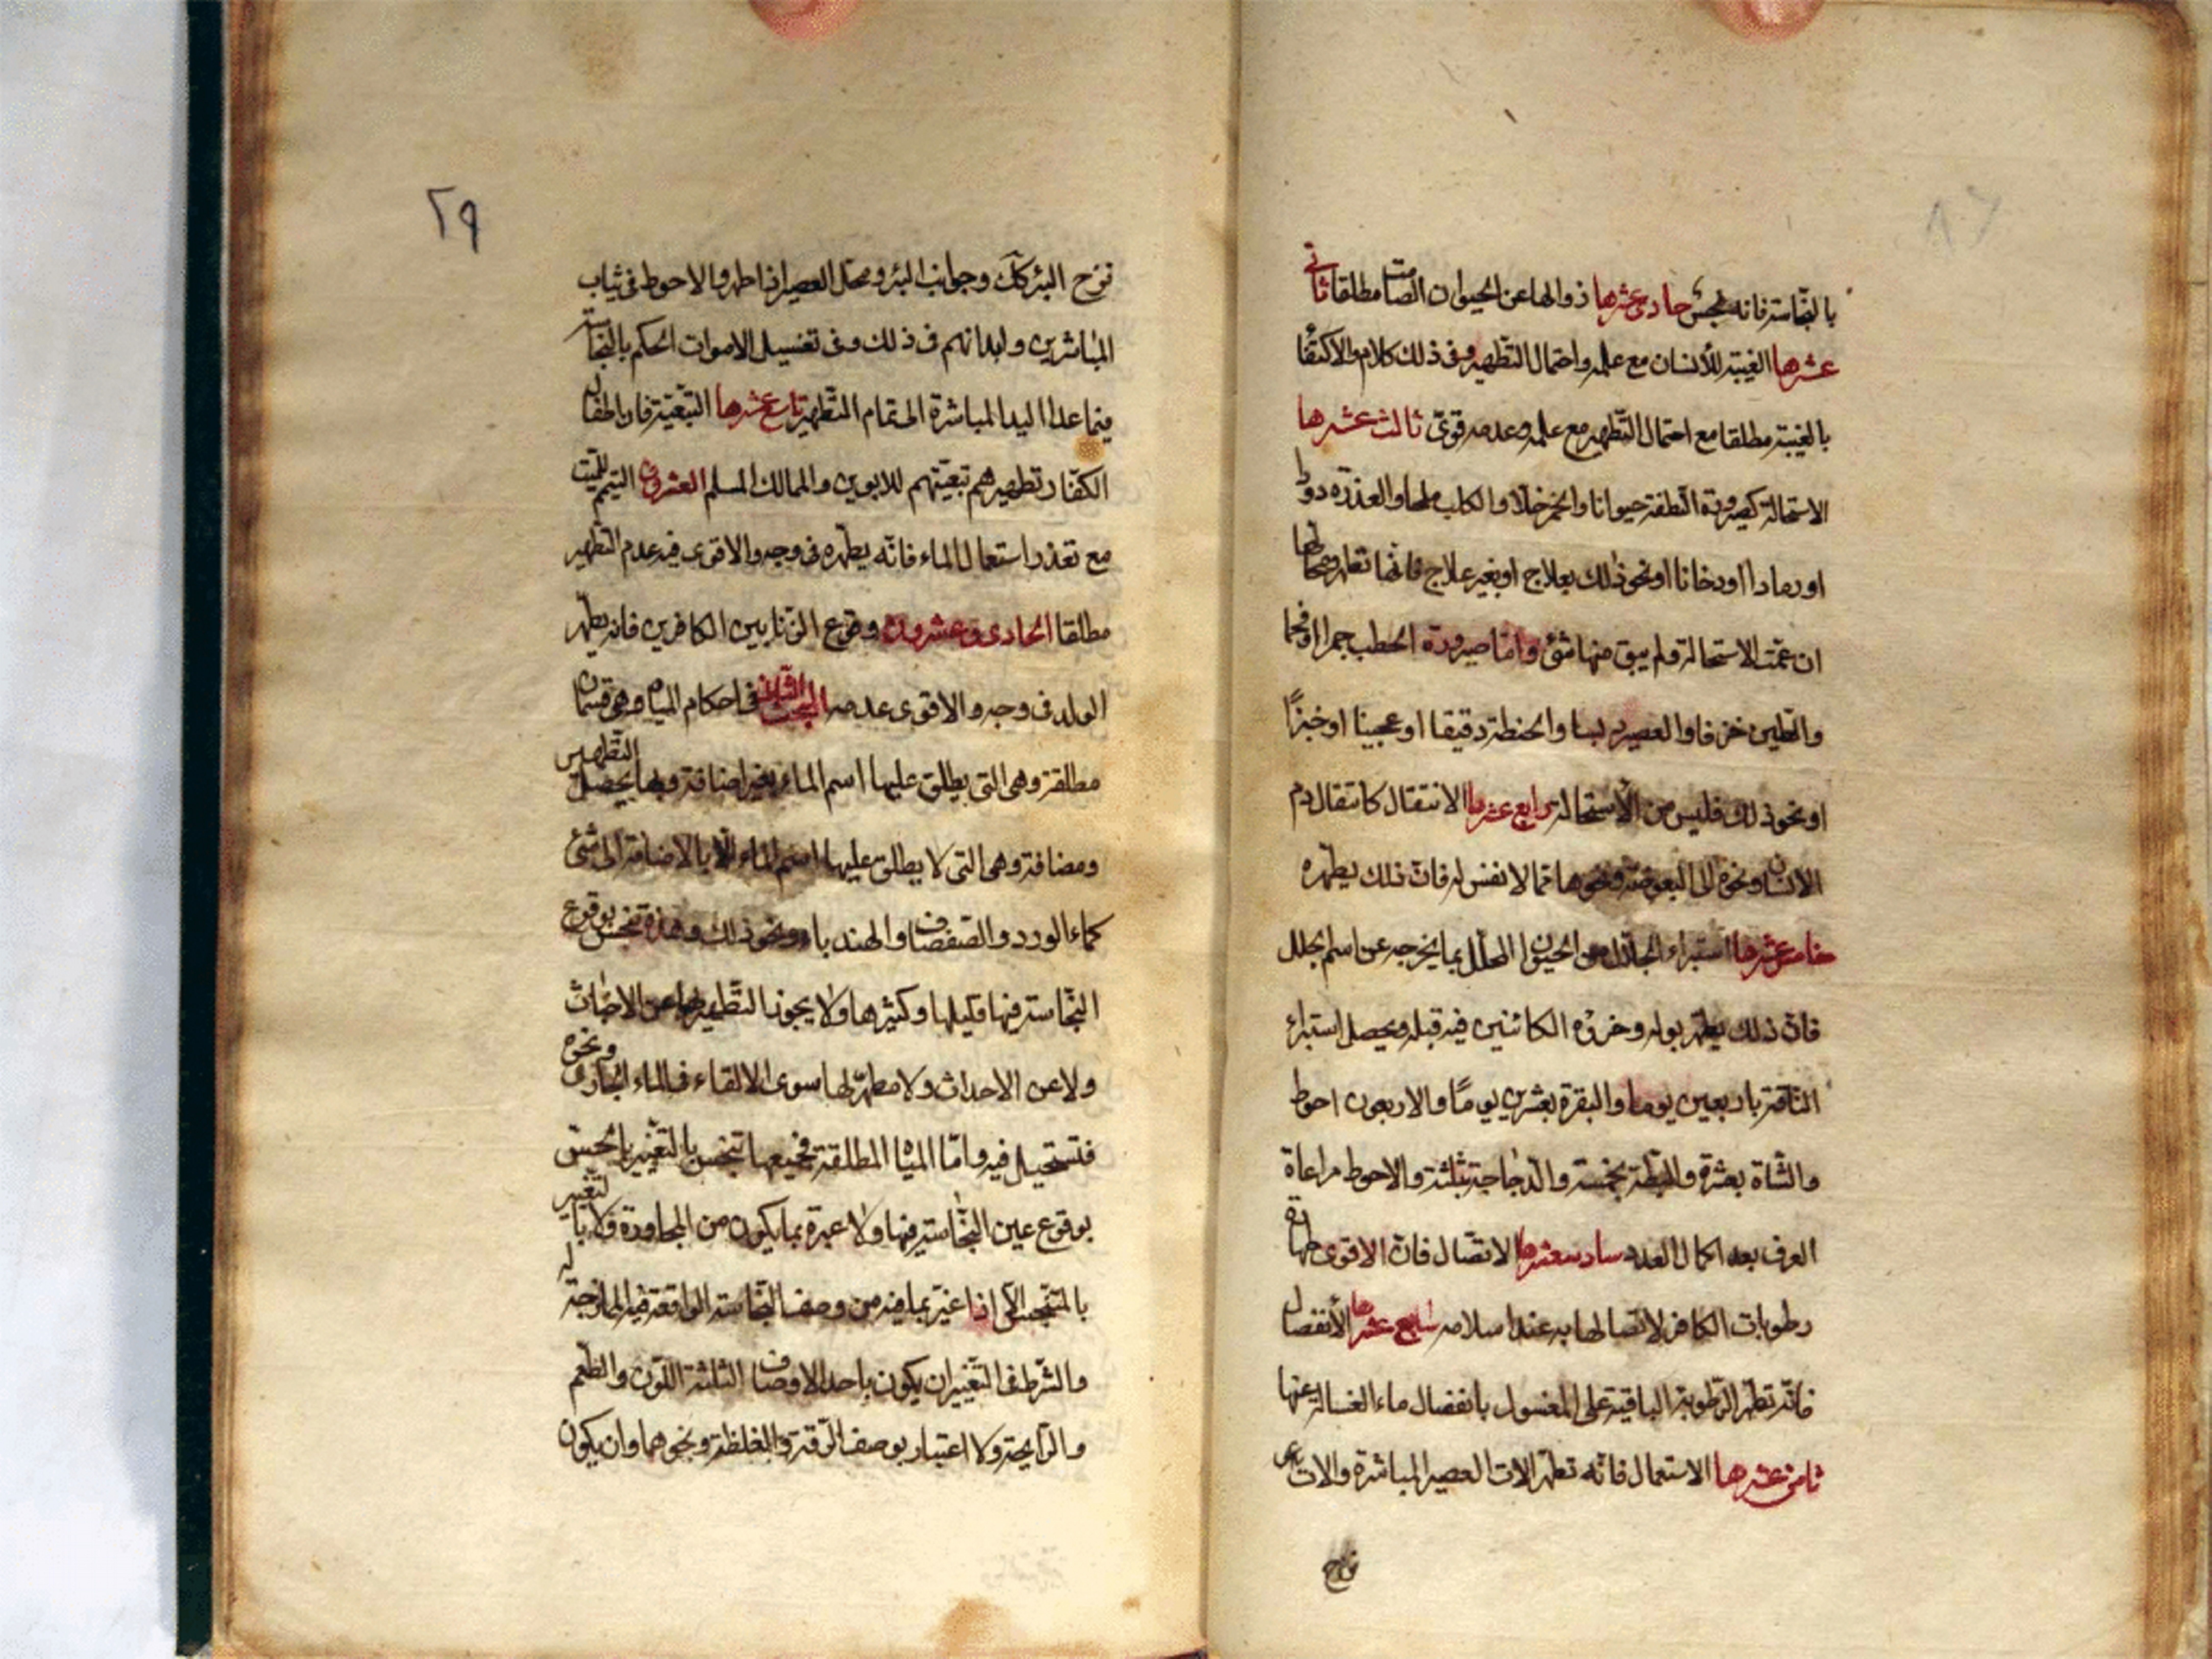 بالنجاسة فانه نجس حادي عشرها زوالها عن الحيوان الصامت مطلقا ثاني
عشرها الغيبة للأنسان مع علمه واحتمال التطهير وفي ذلك كلام والاكتفا
بالغيبة مطلقا مع احتمال التطهير مع علمه وعدمه قوي ثالث عشرها
الاستحالة كصيرورة النطفة حيوانا والخمر خلا والكلب ملحا والعذرة دودا
او رمادا او دخانا او نحو ذلك بعلاج او بغير علاج فانها تطهر ومحالها
ان عمت الاستحالة ولم يبق منها شئ واما صيرورة الحطب جمرا او فحما
والطين خزفا والعصير دبسا والحنطة دقيقا او عجينا او خبزا
او نحو ذلك فليس من الاستحالة رابع عشرها الانتقال كانتقال دم
الانسان ونحوه الى البعوضة ونحوها مما لا نفس له فان ذلك يطهره
خامس عشرها استبراء الجلال من الحيوان المحلل بما يخرجه عن اسم الجلل
فان ذلك يطهر بوله وخرؤه الكائنين فيه قبله ويحصل استبراء
الناقة باربعين يوما والبقرة بعشرين يومًا والاربعون احوط
والشاة بعشرة والبطة بخمسة والدجاجة بثلثة والاحوط مراعاة
العرف بعد اكمال العدد سادس عشرها الاتصال فان الاقوى طهارة
رطوبات الكافر لاتصالها به عند اسلامه سابع عشرها الأنفصال
فانه تطهر الرطوبة الباقية على المغسول بانفصال ماء الغسالة عنها
ثامن عشرها الاستعمال فانه تطهر الات العصير المباشرة والات
نزح
٢٩
نزح البئر كله وجوانب البئر ومحل العصير اذا طهر والاحوط في ثياب
المباشرين وابدانهم في ذلك وفي تغسيل الاموات الحكم بالنجاسة
فيما عدا اليد المباشرة الى تمام التطهير تاسع عشرها التبعية فان اطفال
الكفار تطهيرهم تبعيتهم للابوين والمالك المسلم العشرون التيمم للميت
مع تعذر استعمال الماء فانه يطهره في وجه والاقوى فيه عدم التطهير
مطلقا الحادي وعشرون وقوع الزنا بين الكافرين فانه يطهر
الولد في وجه والاقوى عدمه البحث الثاني في احكام المياه وهي قسمان
مطلقة وهي التي يطلق عليها اسم الماء بغير اضافة وبها يحصل التطهير
ومضافة وهي التي لا يطلق عليها اسم الماء الا بالاضافة الى شئ
كماء الورد والصفصاف والهندباء ونحو ذلك وهذه تنجس بوقوع
النجاسة فيها قليلها وكثيرها ولا يجوز التطهير بها عن الاخباث
ولا عن الاحداث ولا مطهر لها سوى الالقاء في الماء الجاري ونحوه
فتستحيل فيه واما المياه المطلقة فجميعها تنجس بالتغيير بالنجس
بوقوع عين النجاسة فيها ولا عبرة بما يكون من المجاورة ولا بالتغيير
بالمتنجس الا اذا غير بما فيه من وصف النجاسة الواقعة فيه الممازجة له
والشرط في التغيير ان يكون باحد الاوصاف الثلثة اللون والطعم
والرايحة ولا اعتبار بوصف الرقة والغلظة ونحوهما وان يكون